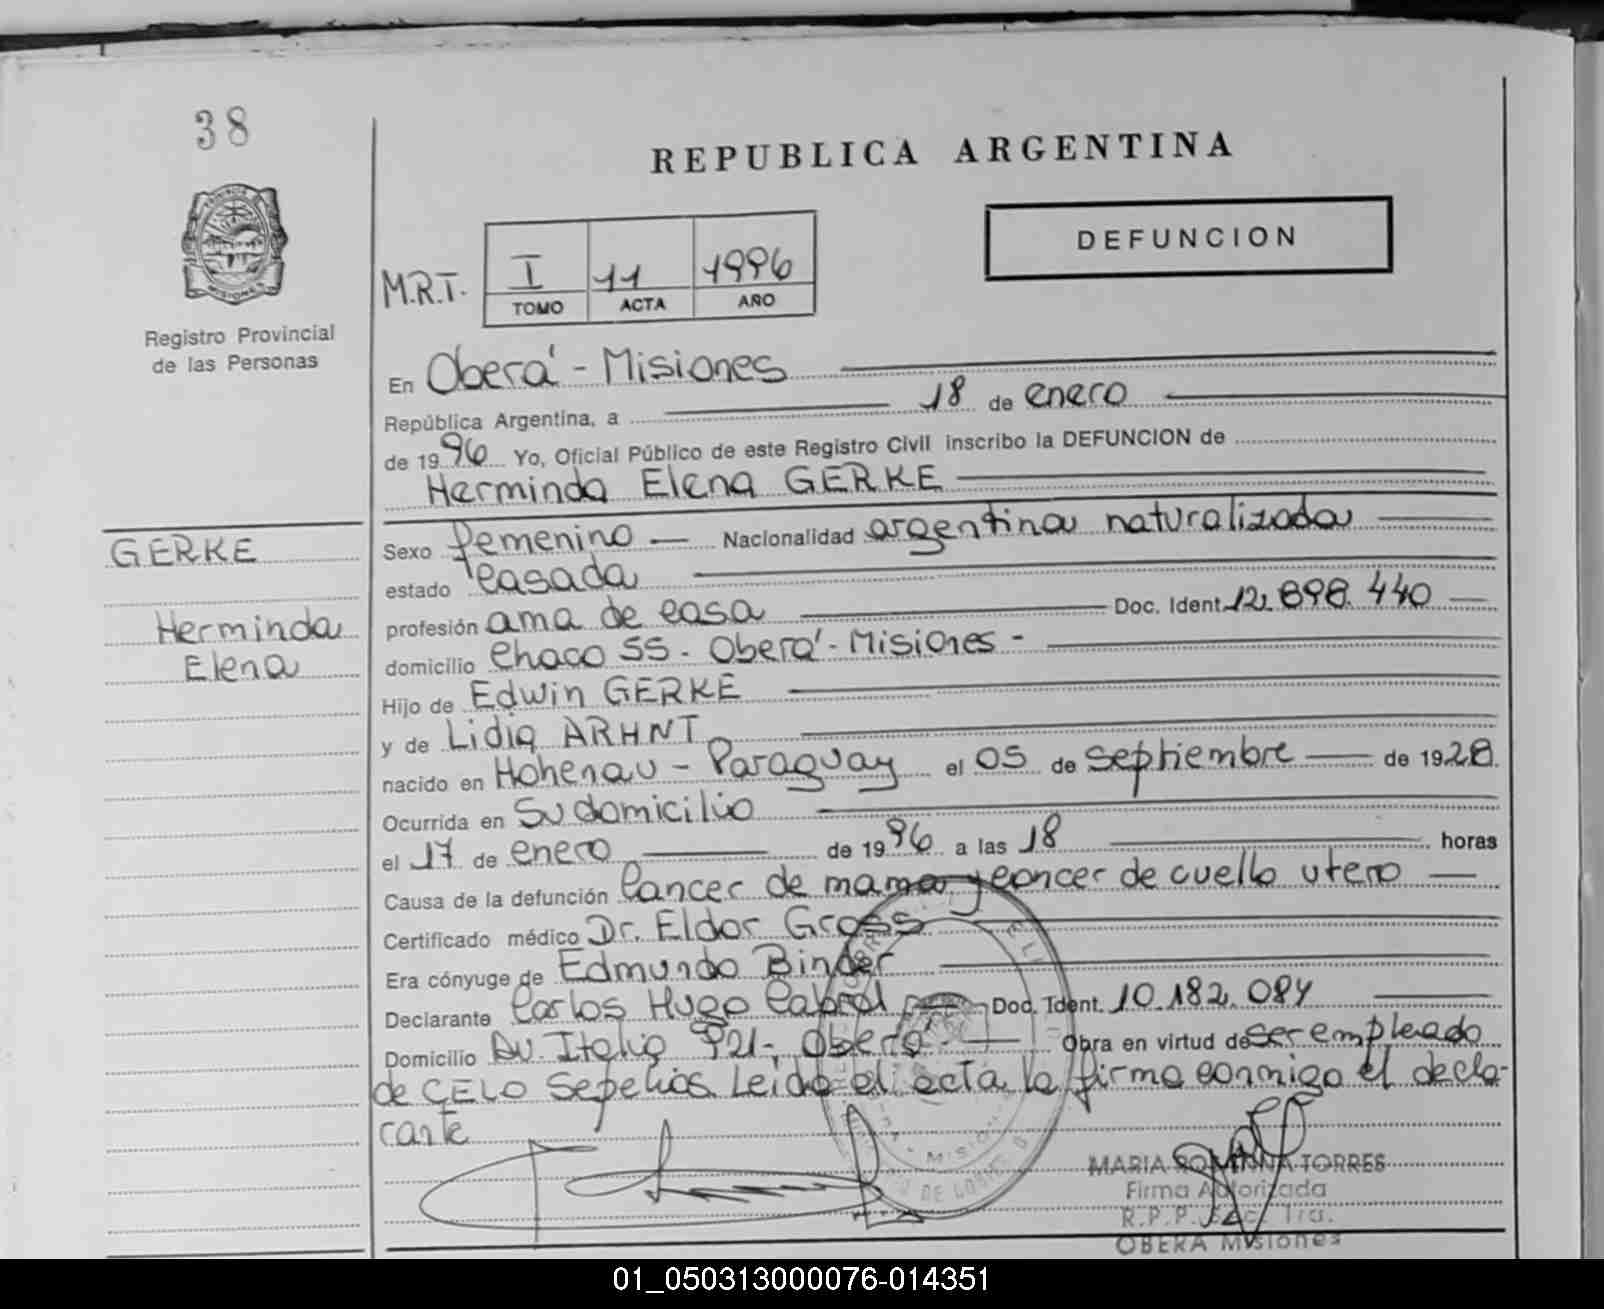 38
REPUBLICA ARGENTINA
PROVINCIA
MISIONES
Registro Provincial
de las Personas
DEFUNCION
M.R.T. I 11 1996
TOMO ACTA AÑO
En Oberá - Misiones
República Argentina, a 18 de enero
de 1996 Yo, Oficial Público de este Registro Civil inscribo la DEFUNCION de
Herminda Elena GERKE
GERKE
Herminda
Elena
Sexo femenino Nacionalidad argentina naturalizada
estado casada
profesión ama de casa Doc. Ident. 12.898.440
domicilio Chaco 55 - Oberá - Misiones -
Hijo de Edwin GERKE
y de Lidia ARHNT
nacido en Hohenau - Paraguay el 05 de septiembre de 1928
Ocurrida en Su domicilio
el 17 de enero de 1996 a las 18 horas
Causa de la defunción Cancer de mama y cancer de cuello utero
Certificado médico Dr. Eldor Gross
Era cónyuge de Edmundo Binder
Declarante Carlos Hugo Cabral Doc. Ident. 10.182.084
Domicilio Av. Italia 921 - Oberá Obra en virtud de ser empleado
de CELO Sepelios. Leída el acta la firma conmigo el decla-
rante
MARIA ROMINNA TORRES
Firma Autorizada
R.P.P. Sec. 1ra.
OBERA Misiones
01_050313000076-014351